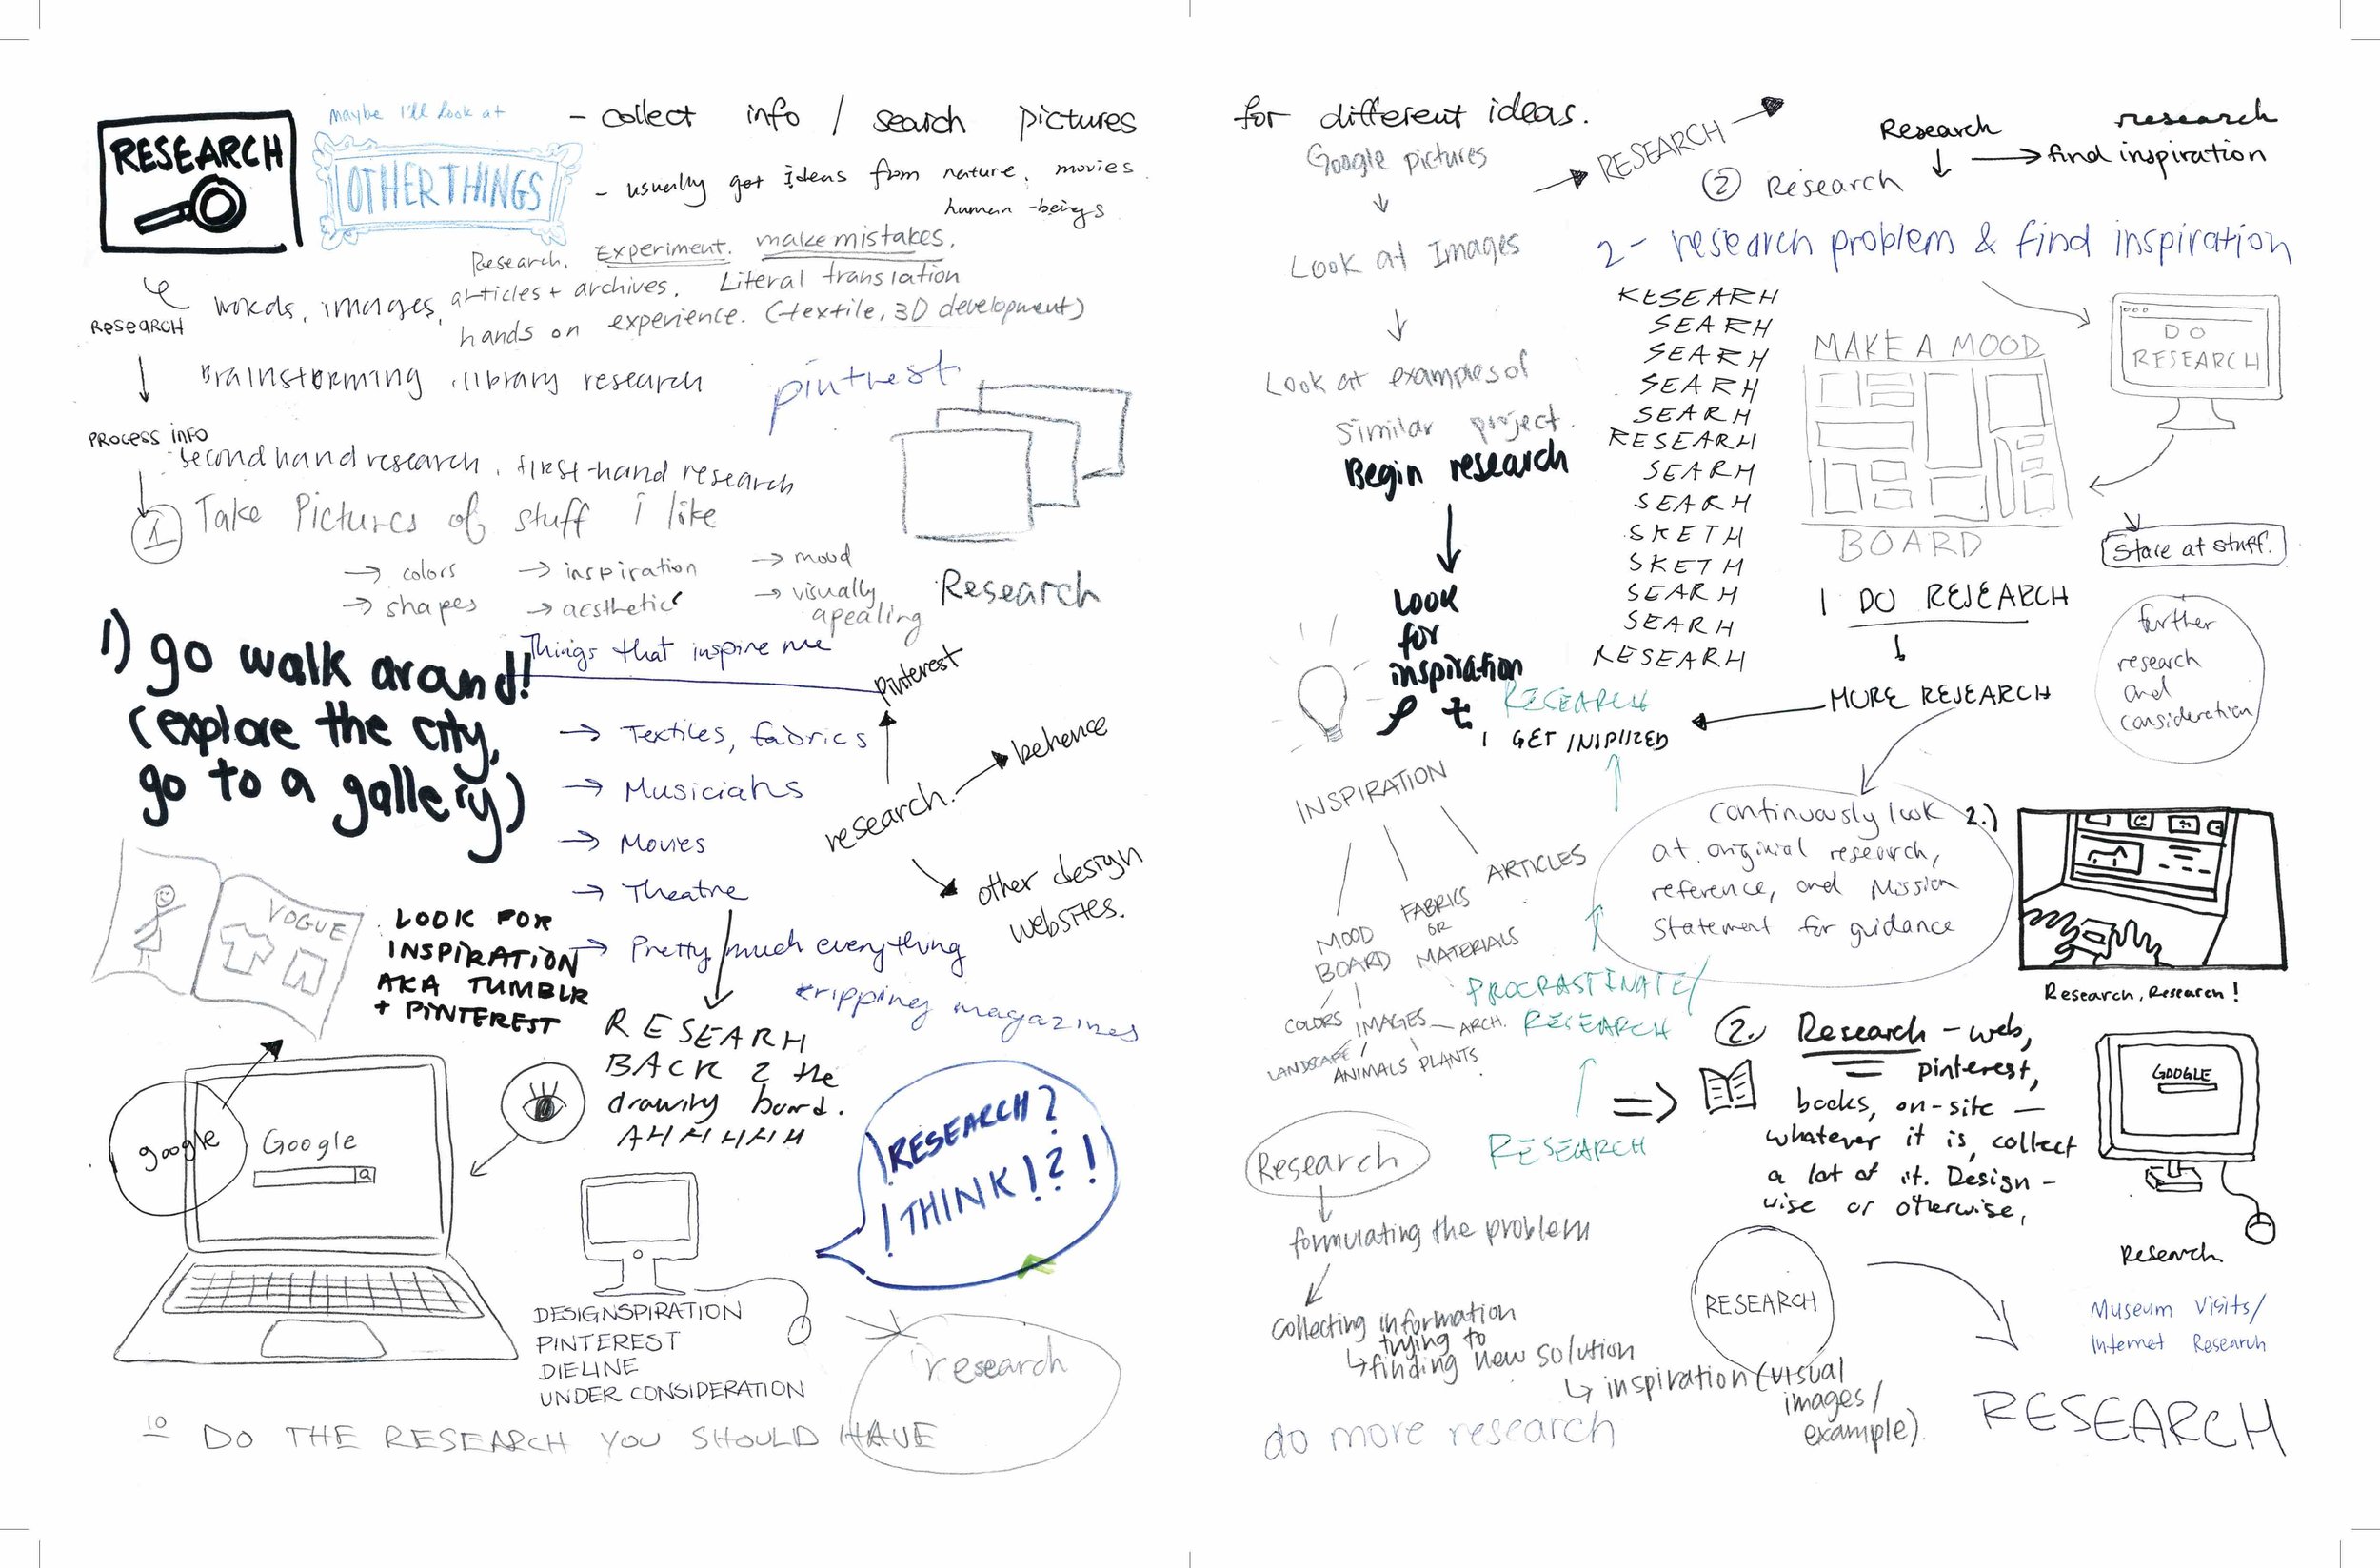 RESEARCH
maybe I'll look at
OTHER THINGS
- collect info / search pictures
- usually get Ideas from nature, movies
human-beings
Research. Experiment. make mistakes.
words, images, articles + archives. Literal translation
hands on experience. (textile, 3D development)
RESEARCH
Brainstorming, library research
pintrest
PROCESS INFO
Second hand research, first-hand research
1 Take Pictures of stuff i like
→ colors → inspiration → mood
→ shapes → aesthetic → visually
apealing
Research
1) go walk around!
(explore the city,
go to a gallery)
Things that inspire me
→ Textiles, fabrics
→ Musicians
→ Movies
→ Theatre
→ Pretty much everything
pinterest
behence
research.
other design
websites.
ripping magazines
VOGUE
LOOK FOR
INSPIRATION
AKA TUMBLR
+ PINTEREST
RESEARH
BACK 2 the
drawing board.
AHHHHH
google
Google
RESEARCH?
! THINK!?!
DESIGNSPIRATION
PINTEREST
DIELINE
UNDER CONSIDERATION
research
10 DO THE RESEARCH YOU SHOULD HAVE
for different ideas.
Google pictures
↓
Look at Images
↓
Look at examples of
Similar project.
Begin research
↓
Look
for
inspiration
→ RESEARCH →
② Research
Research
↓
research
→ find inspiration
2- research problem & find inspiration
RESEARH
SEARH
SEARH
SEARH
SEARH
RESEARH
SEARH
SEARH
SKETH
SKETH
SEARH
SEARH
RESEARH
MAKE A MOOD
BOARD
DO
RESEARCH
Stare at stuff.
I DO RESEARCH
↓
MORE RESEARCH
further
research
and
consideration
RESEARCH
I GET INSPIIZED
INSPIRATION
MOOD
BOARD
FABRICS
OR
MATERIALS
ARTICLES
COLORS IMAGES — ARCH.
LANDSCAPE ANIMALS PLANTS
Continuously look
at original research,
reference, and Mission
Statement for guidance
2.)
Research, Research!
PROCRASTINATE/
RESEARCH
RESEARCH
②. Research - web,
pinterest,
books, on-site —
whatever it is, collect
a lot of it. Design -
wise or otherwise,
GOOGLE
Research
Research
formulating the problem
collecting information
trying to
↳ finding new solution
↳ inspiration (visual
images/
example).
RESEARCH
Museum Visits/
Internet Research
do more research
RESEARCH